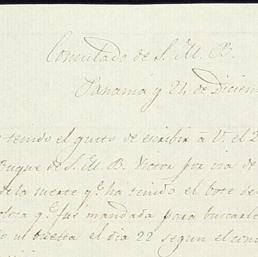 Consulado de S. M. B.
Panamá y 24 de Diciem
tenido el gusto de escribir á V. el 2
Buque de S. M. B. Victor por via de
de la suerte q.e ha tenido el bote de
q.e fué mandada para buscarle
el dia 22 segun el